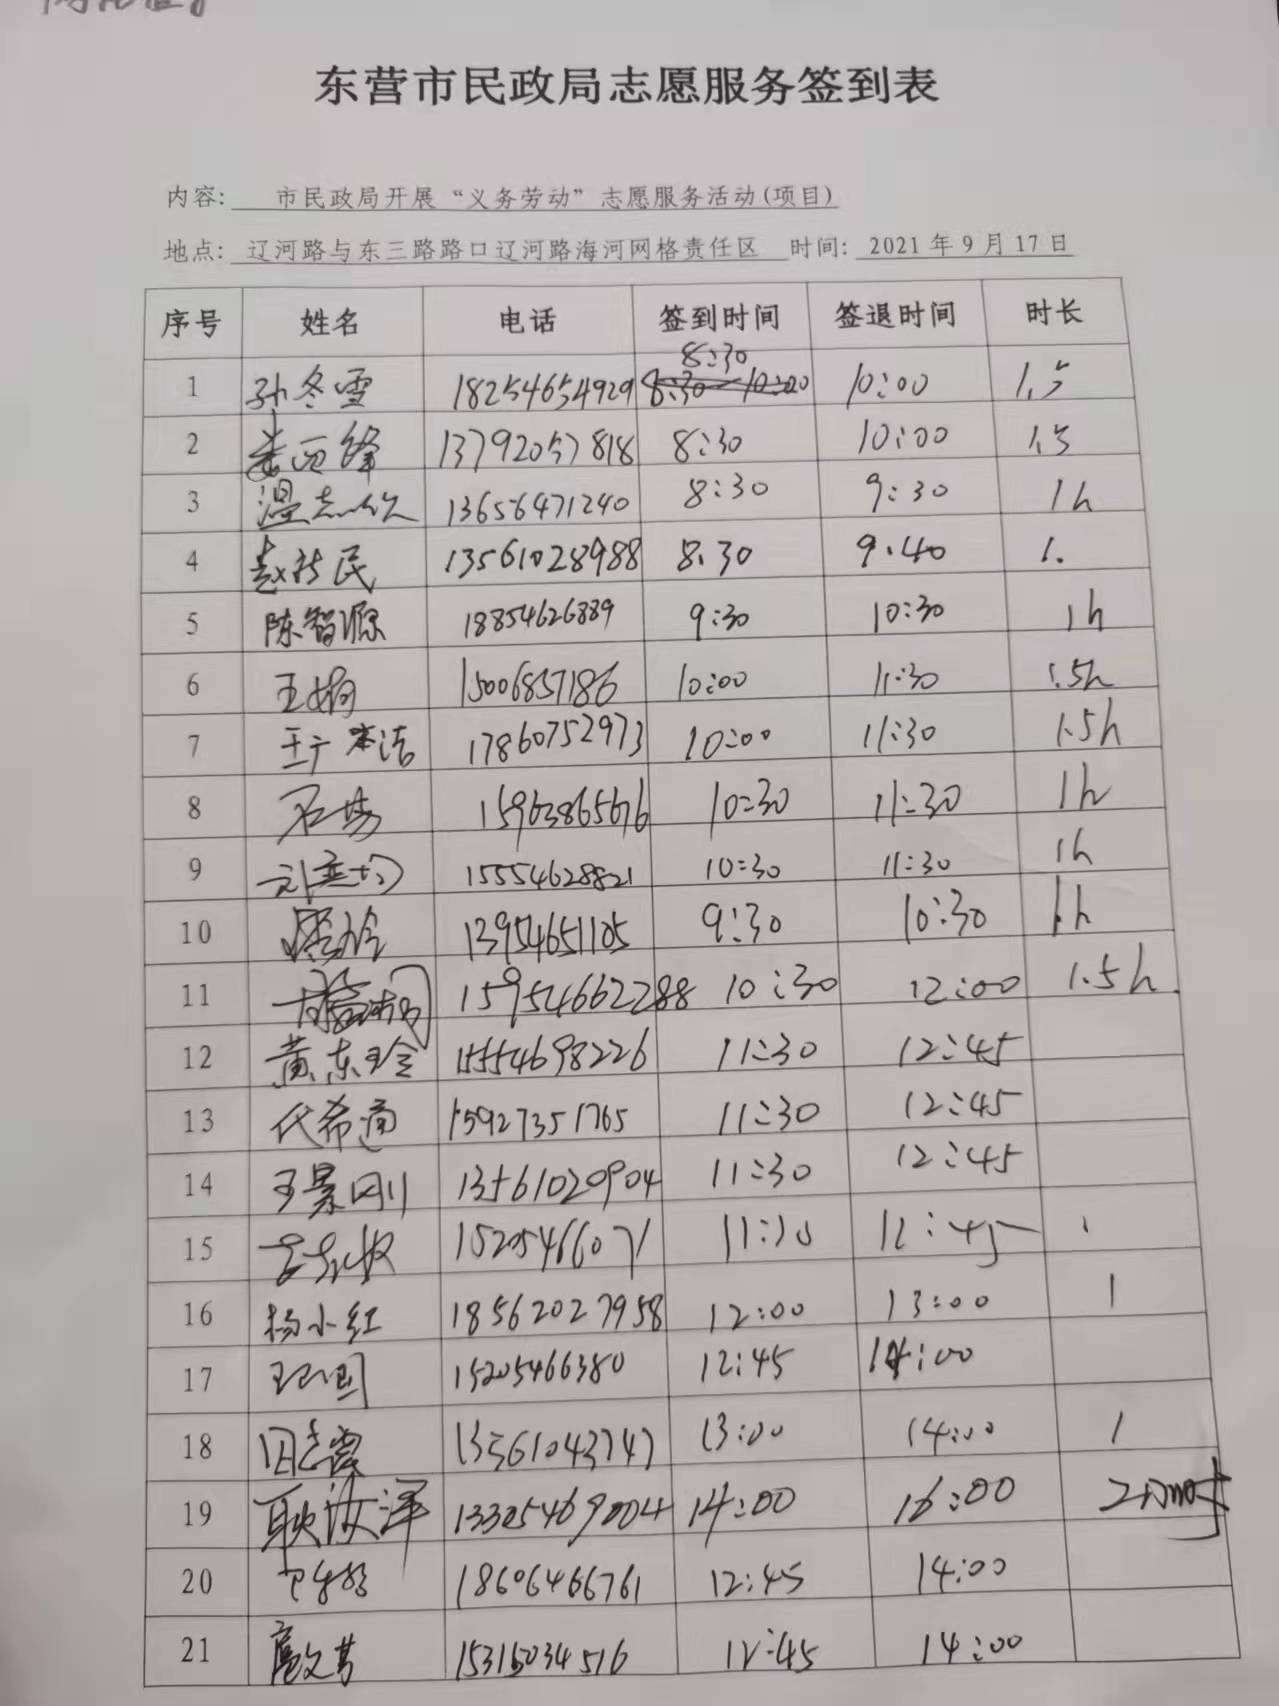 东营市民政局志愿服务签到表
内容: 市民政局开展“义务劳动”志愿服务活动(项目)
地点: 辽河路与东三路路口辽河路海河网格责任区 时间: 2021年9月17日
序号 姓名 电话 签到时间 签退时间 时长
1 孙冬雪 18254654929 8:30 10:00 1.5
2 13792057818 8:30 10:00 1.5
3 温志欣 13656471240 8:30 9:30 1h
4 赵新民 13561028988 8.30 9.40 1.
5 陈智源 18854626889 9:30 10:30 1h
6 王娟 15006857186 10:00 11:30 1.5h
7 17860752973 10:00 11:30 1.5h
8 15963865676 10:30 11:30 1h
9 15554628821 10:30 11:30 1h
10 13954651105 9:30 10:30 1h
11 15954662288 10:30 12:00 1.5h
12 黄东玲 15554698226 11:30 12:45
13 代希 15927351765 11:30 12:45
14 王景刚 13561020904 11:30 12:45
15 15205466071 11:30 12:45
16 杨小红 18562027958 12:00 13:00 1
17 15205466380 12:45 14:00
18 田志霞 13561043747 13:00 14:00 1
19 耿汝泽 13325469004 14:00 16:00
20 18606466761 12:45 14:00
21 扈文芳 15315034516 12:45 14:00